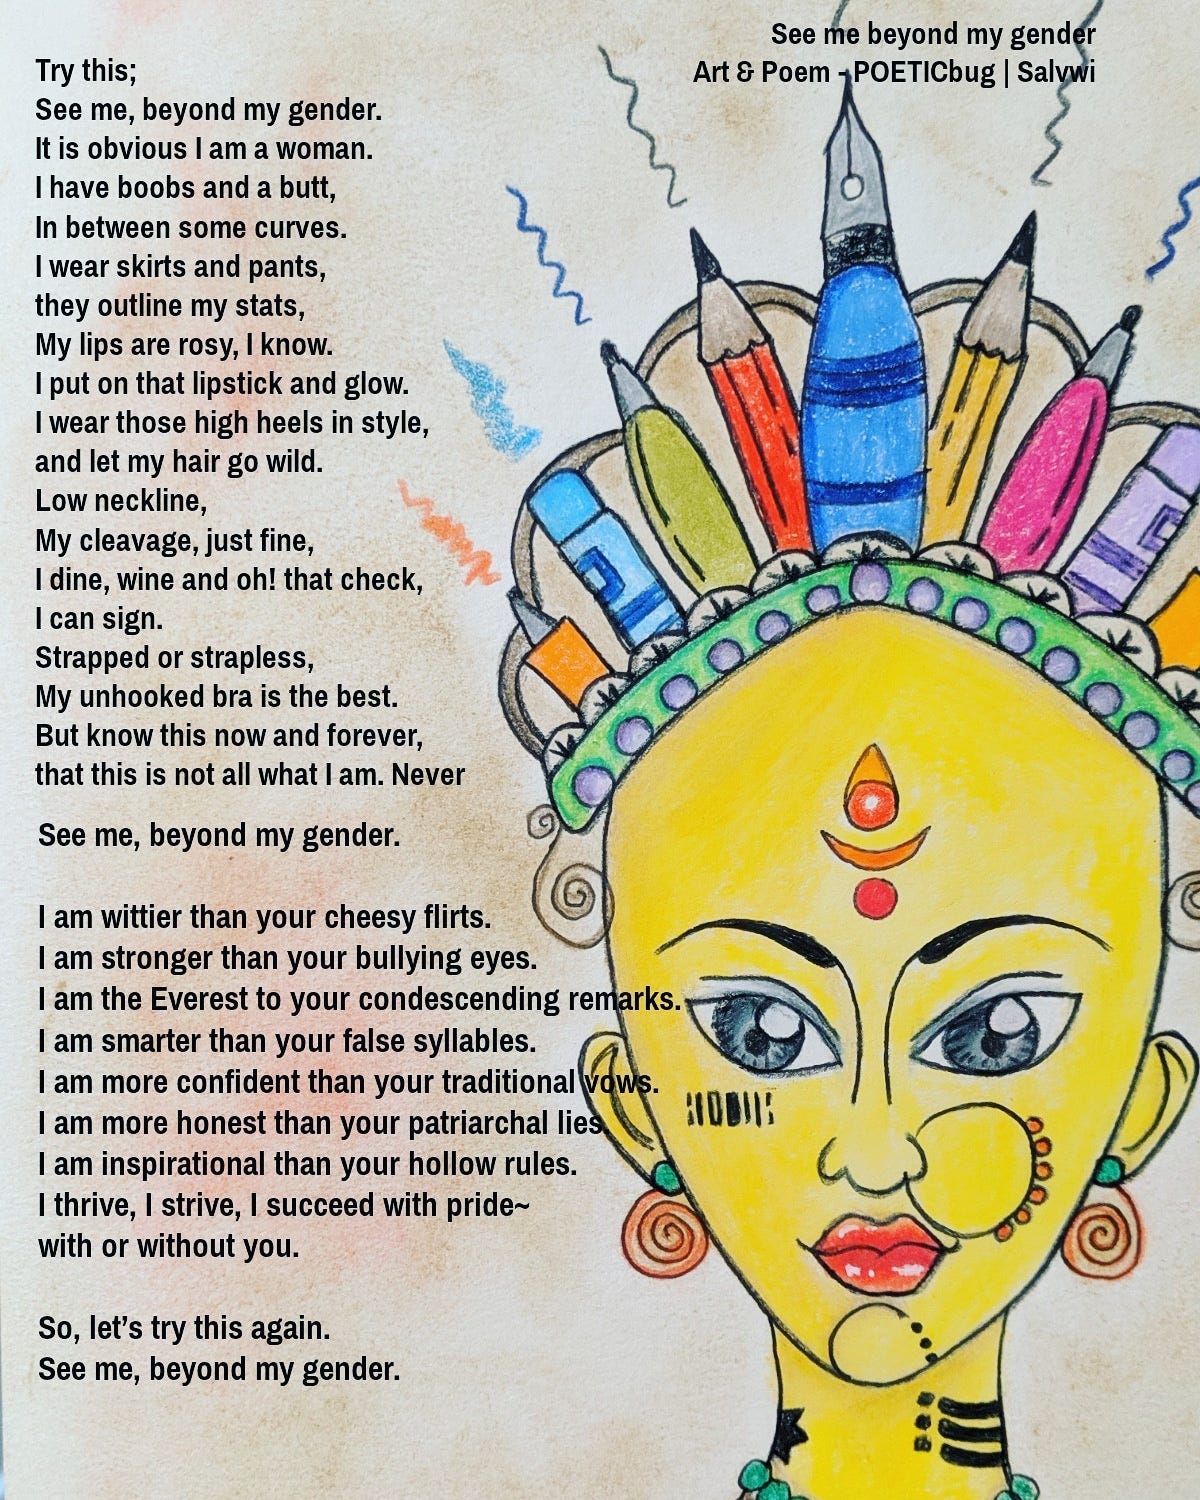 See me beyond my gender
Art & Poem - POETICbug | Salvwi
Try this;
See me, beyond my gender.
It is obvious I am a woman.
I have boobs and a butt,
In between some curves.
I wear skirts and pants,
they outline my stats,
My lips are rosy, I know.
I put on that lipstick and glow.
I wear those high heels in style,
and let my hair go wild.
Low neckline,
My cleavage, just fine,
I dine, wine and oh! that check,
I can sign.
Strapped or strapless,
My unhooked bra is the best.
But know this now and forever,
that this is not all what I am. Never
See me, beyond my gender.
I am wittier than your cheesy flirts.
I am stronger than your bullying eyes.
I am the Everest to your condescending remarks.
I am smarter than your false syllables.
I am more confident than your traditional vows.
I am more honest than your patriarchal lies.
I am inspirational than your hollow rules.
I thrive, I strive, I succeed with pride~
with or without you.
So, let’s try this again.
See me, beyond my gender.